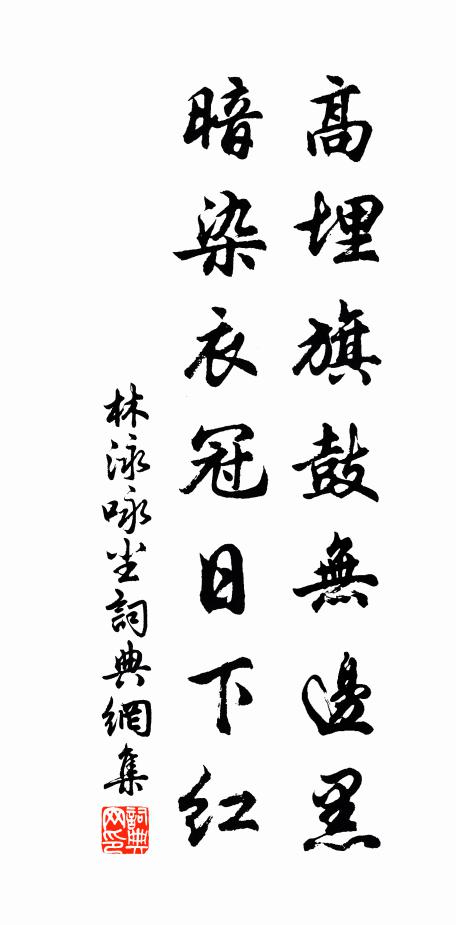 高埋旗鼓無邊黑
暗染衣冠日下紅
林泳咏尘詞典網集
詞典网印